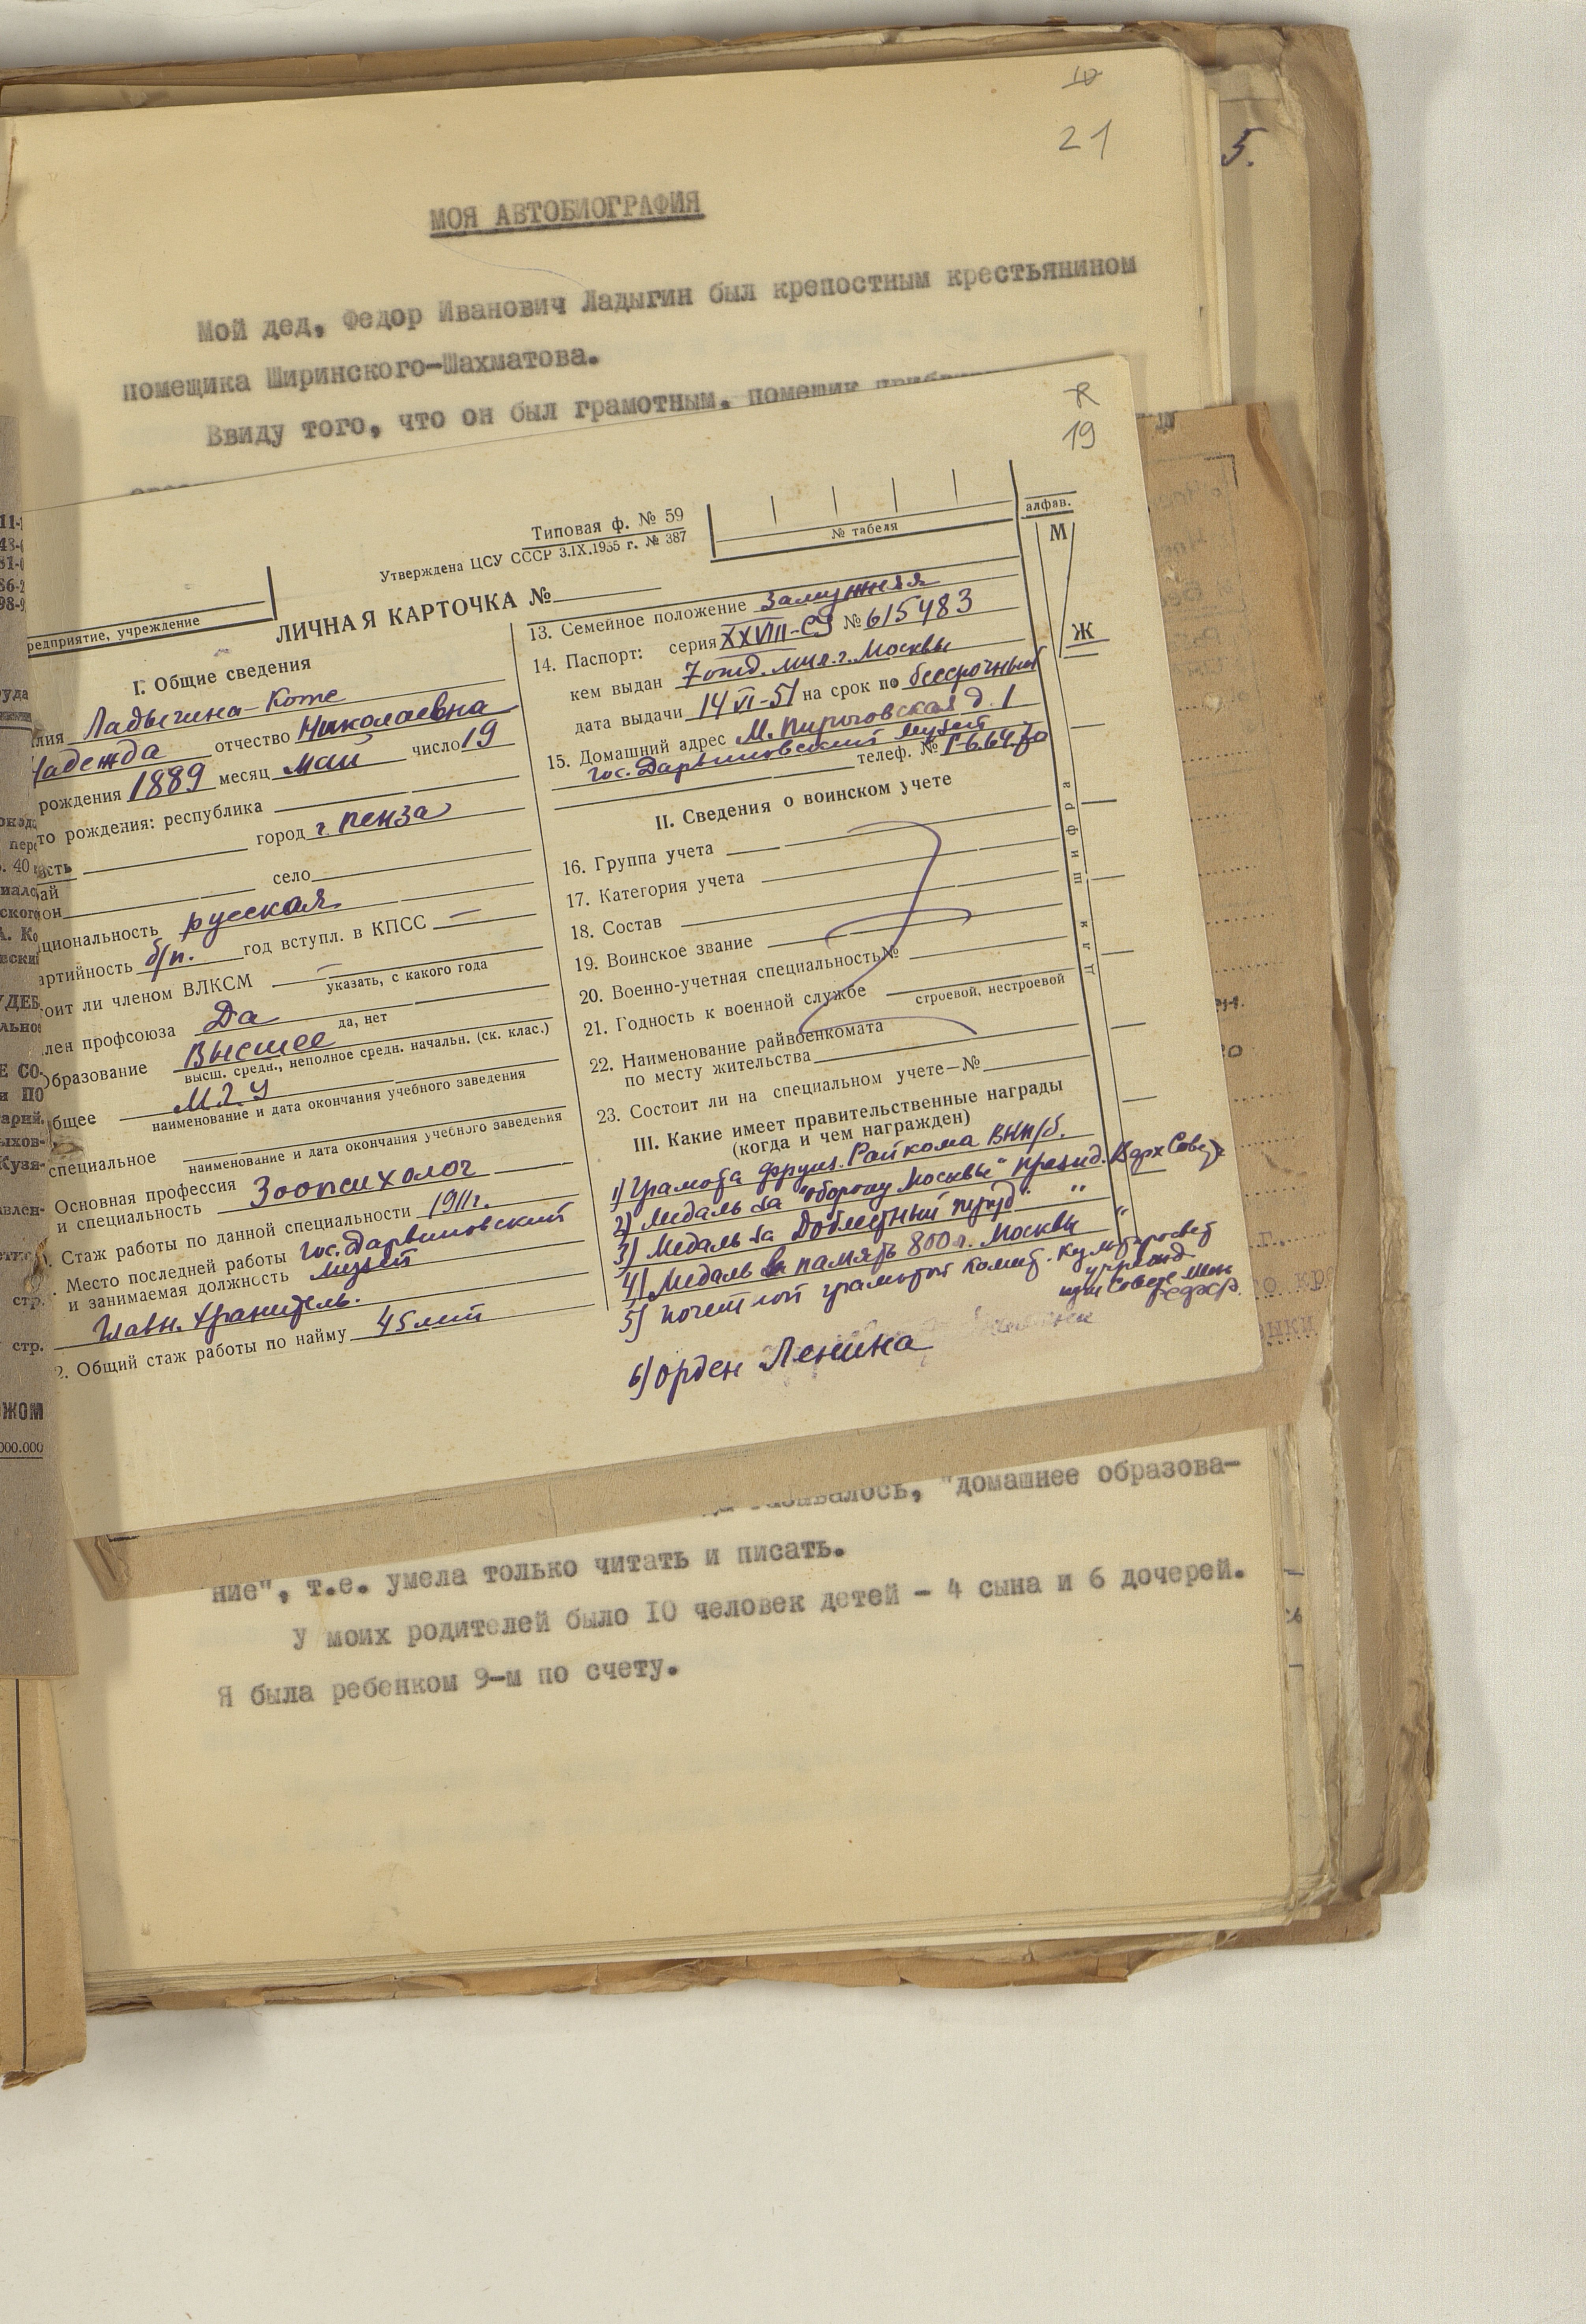 10
21
5.
МОЯ АВТОБИОГРАФИЯ
Мой дед, Федор Иванович Ладыгин был крепостным крестьянином
помещика Ширинского-Шахматова.
Ввиду того, что он был грамотным, помещик
19
Типовая ф. № 59
Утверждена ЦСУ СССР 3.IX.1955 г. № 387
№ табеля
алфав.
М
Ж
редприятие, учреждение
ЛИЧНАЯ КАРТОЧКА №
I. Общие сведения
лия Ладыгина-Котс
Надежда отчество Николаевна
рождения 1889 месяц май число 19
то рождения: республика
город г. Пенза
сть
село
ай
он
циональность русская
артийность б/п. год вступл. в КПСС —
оит ли членом ВЛКСМ —
указать, с какого года
лен профсоюза Да
да, нет
Образование Высшее
высш. средн., неполное средн. начальн. (ск. клас.)
бщее МГУ
наименование и дата окончания учебного заведения
специальное
наименование и дата окончания учебного заведения
Основная профессия
и специальность Зоопсихолог
Стаж работы по данной специальности 1911г.
Место последней работы Гос. Дарвиновский
и занимаемая должность музей
Главн. хранитель.
2. Общий стаж работы по найму 45 лет
13. Семейное положение Замужняя
14. Паспорт: серия XXVIII-СЯ № 615483
кем выдан 7 отд. мил. г. Москвы
дата выдачи 14 VI-51 на срок по бессрочный
15. Домашний адрес М. Пироговская д. 1
Гос. Дарвиновский музей
телеф. № Г-6.64.70
II. Сведения о воинском учете
16. Группа учета
17. Категория учета
18. Состав
19. Воинское звание
20. Военно-учетная специальность №
21. Годность к военной службе
строевой, нестроевой
22. Наименование райвоенкомата
по месту жительства
23. Состоит ли на специальном учете—№
III. Какие имеет правительственные награды
(когда и чем награжден)
1) Грамота Фрунз. Райкома ВКП/б.
2) Медаль за "оборону Москвы" презид. Верх Совет
3) Медаль за Доблестный труд" "
4) Медаль в память 800 л. Москвы "
5) почетной грамотой комит. культпросвет
учрежд.
при Совете Мин
РСФСР.
6) Орден Ленина
шифр
для
"домашнее образова-
ние", т.е. умела только читать и писать.
У моих родителей было 10 человек детей - 4 сына и 6 дочерей.
Я была ребенком 9-м по счету.